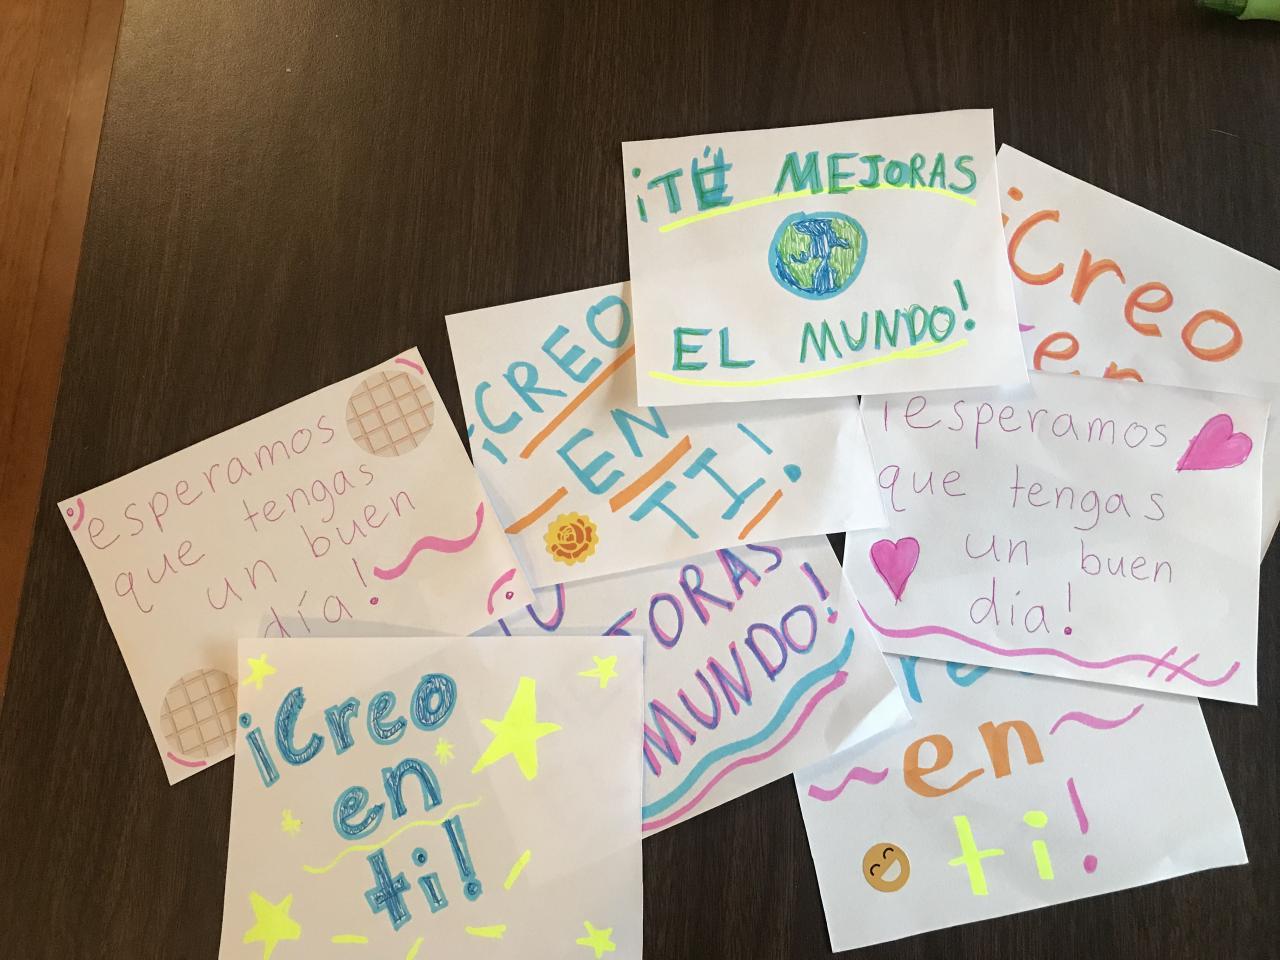 ¡TÚ MEJORAS
EL MUNDO!
¡Creo
en
¡CREO
EN
TI!
¡esperamos
que tengas
un buen
día!
esperamos
que tengas
un buen
día!
TÚ
MUNDO!
en
ti!
¡Creo
en
ti!